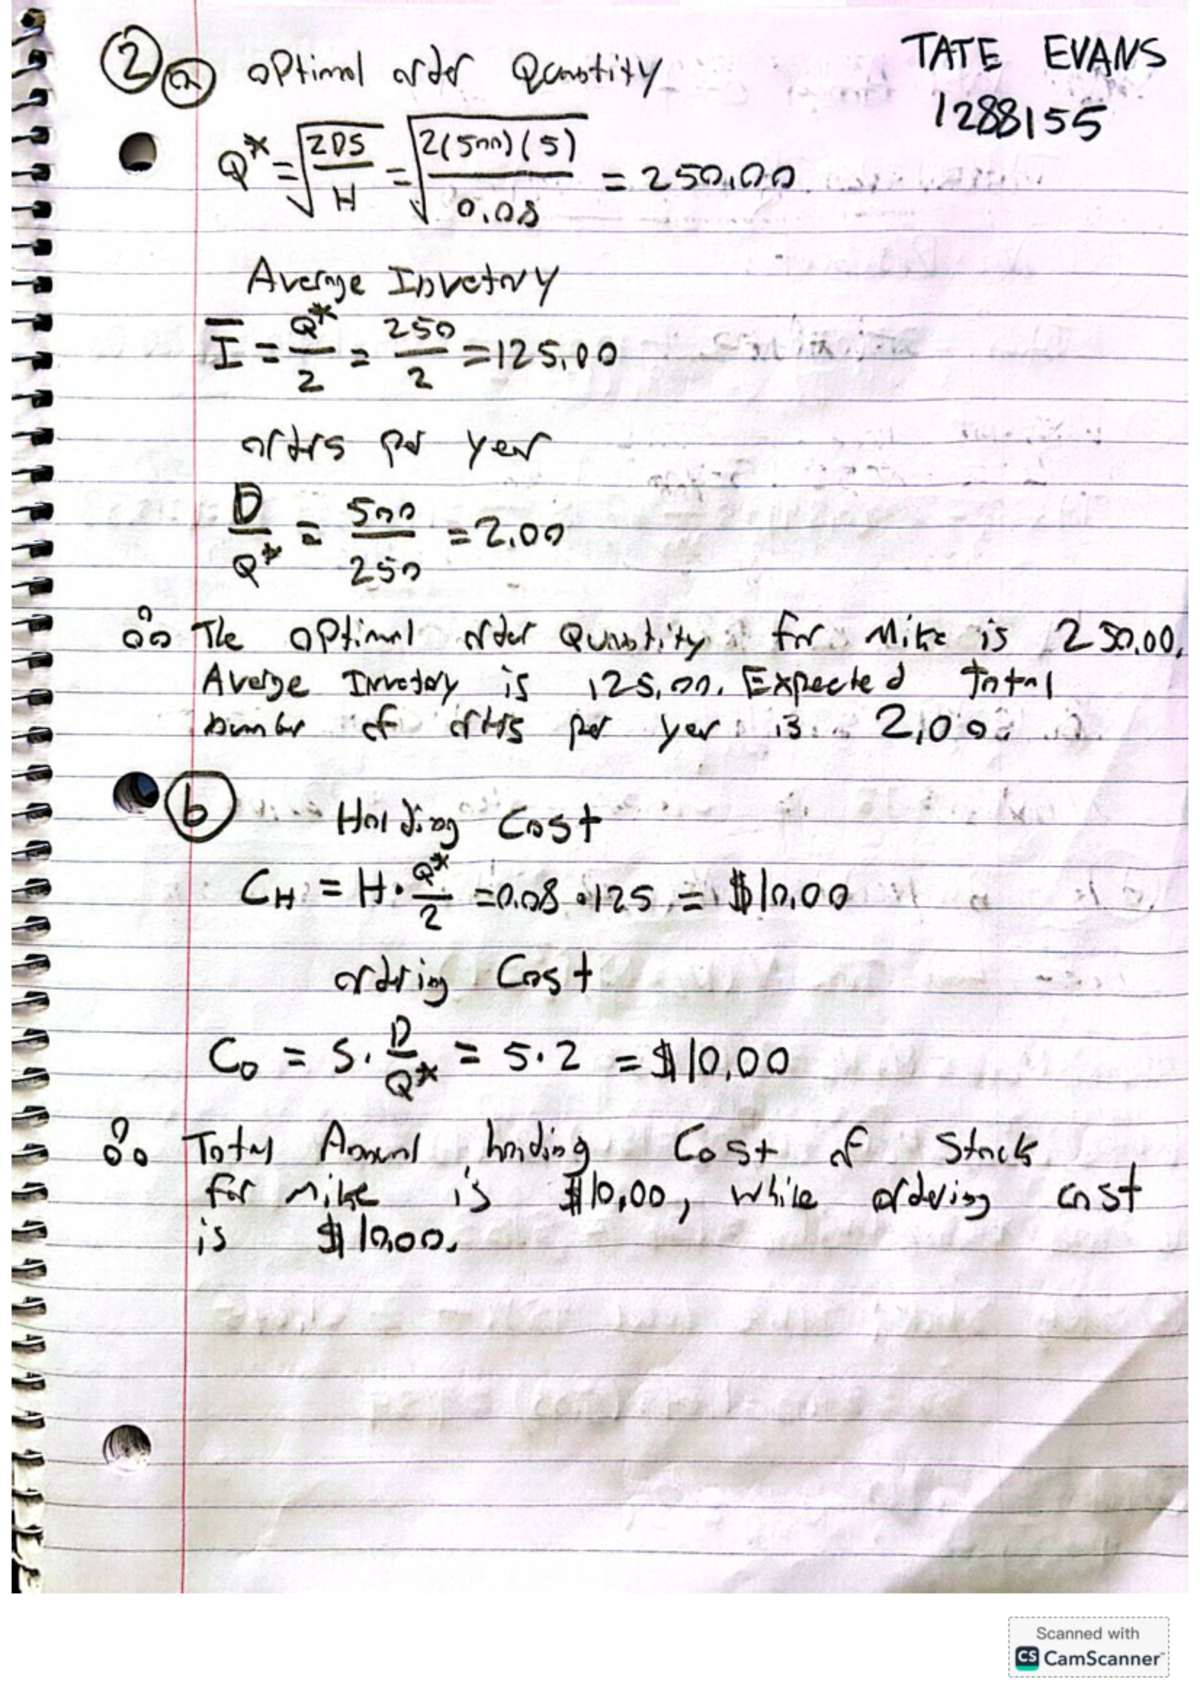 ② ⓐ Optimal order Quantity TATE EVANS
1288155
Q* = √(2DS / H) = √(2(500)(5) / 0.08) = 250.00
Average Invetory
I̅ = Q*/2 = 250/2 = 125.00
orders per year
D/Q* = 500/250 = 2.00
∴ The optimal order Quantity for Mike is 250.00.
Average Invetory is 125.00. Expected total
number of orders per year is 2.00.
ⓑ Holding Cost
C_H = H · Q*/2 = 0.08 · 125 = $10.00
ordering Cost
C_O = S · D/Q* = 5 · 2 = $10.00
∴ Total Annual holding Cost of Stock
for Mike is $10.00, while ordering cost
is $10.00.
Scanned with
CS CamScanner